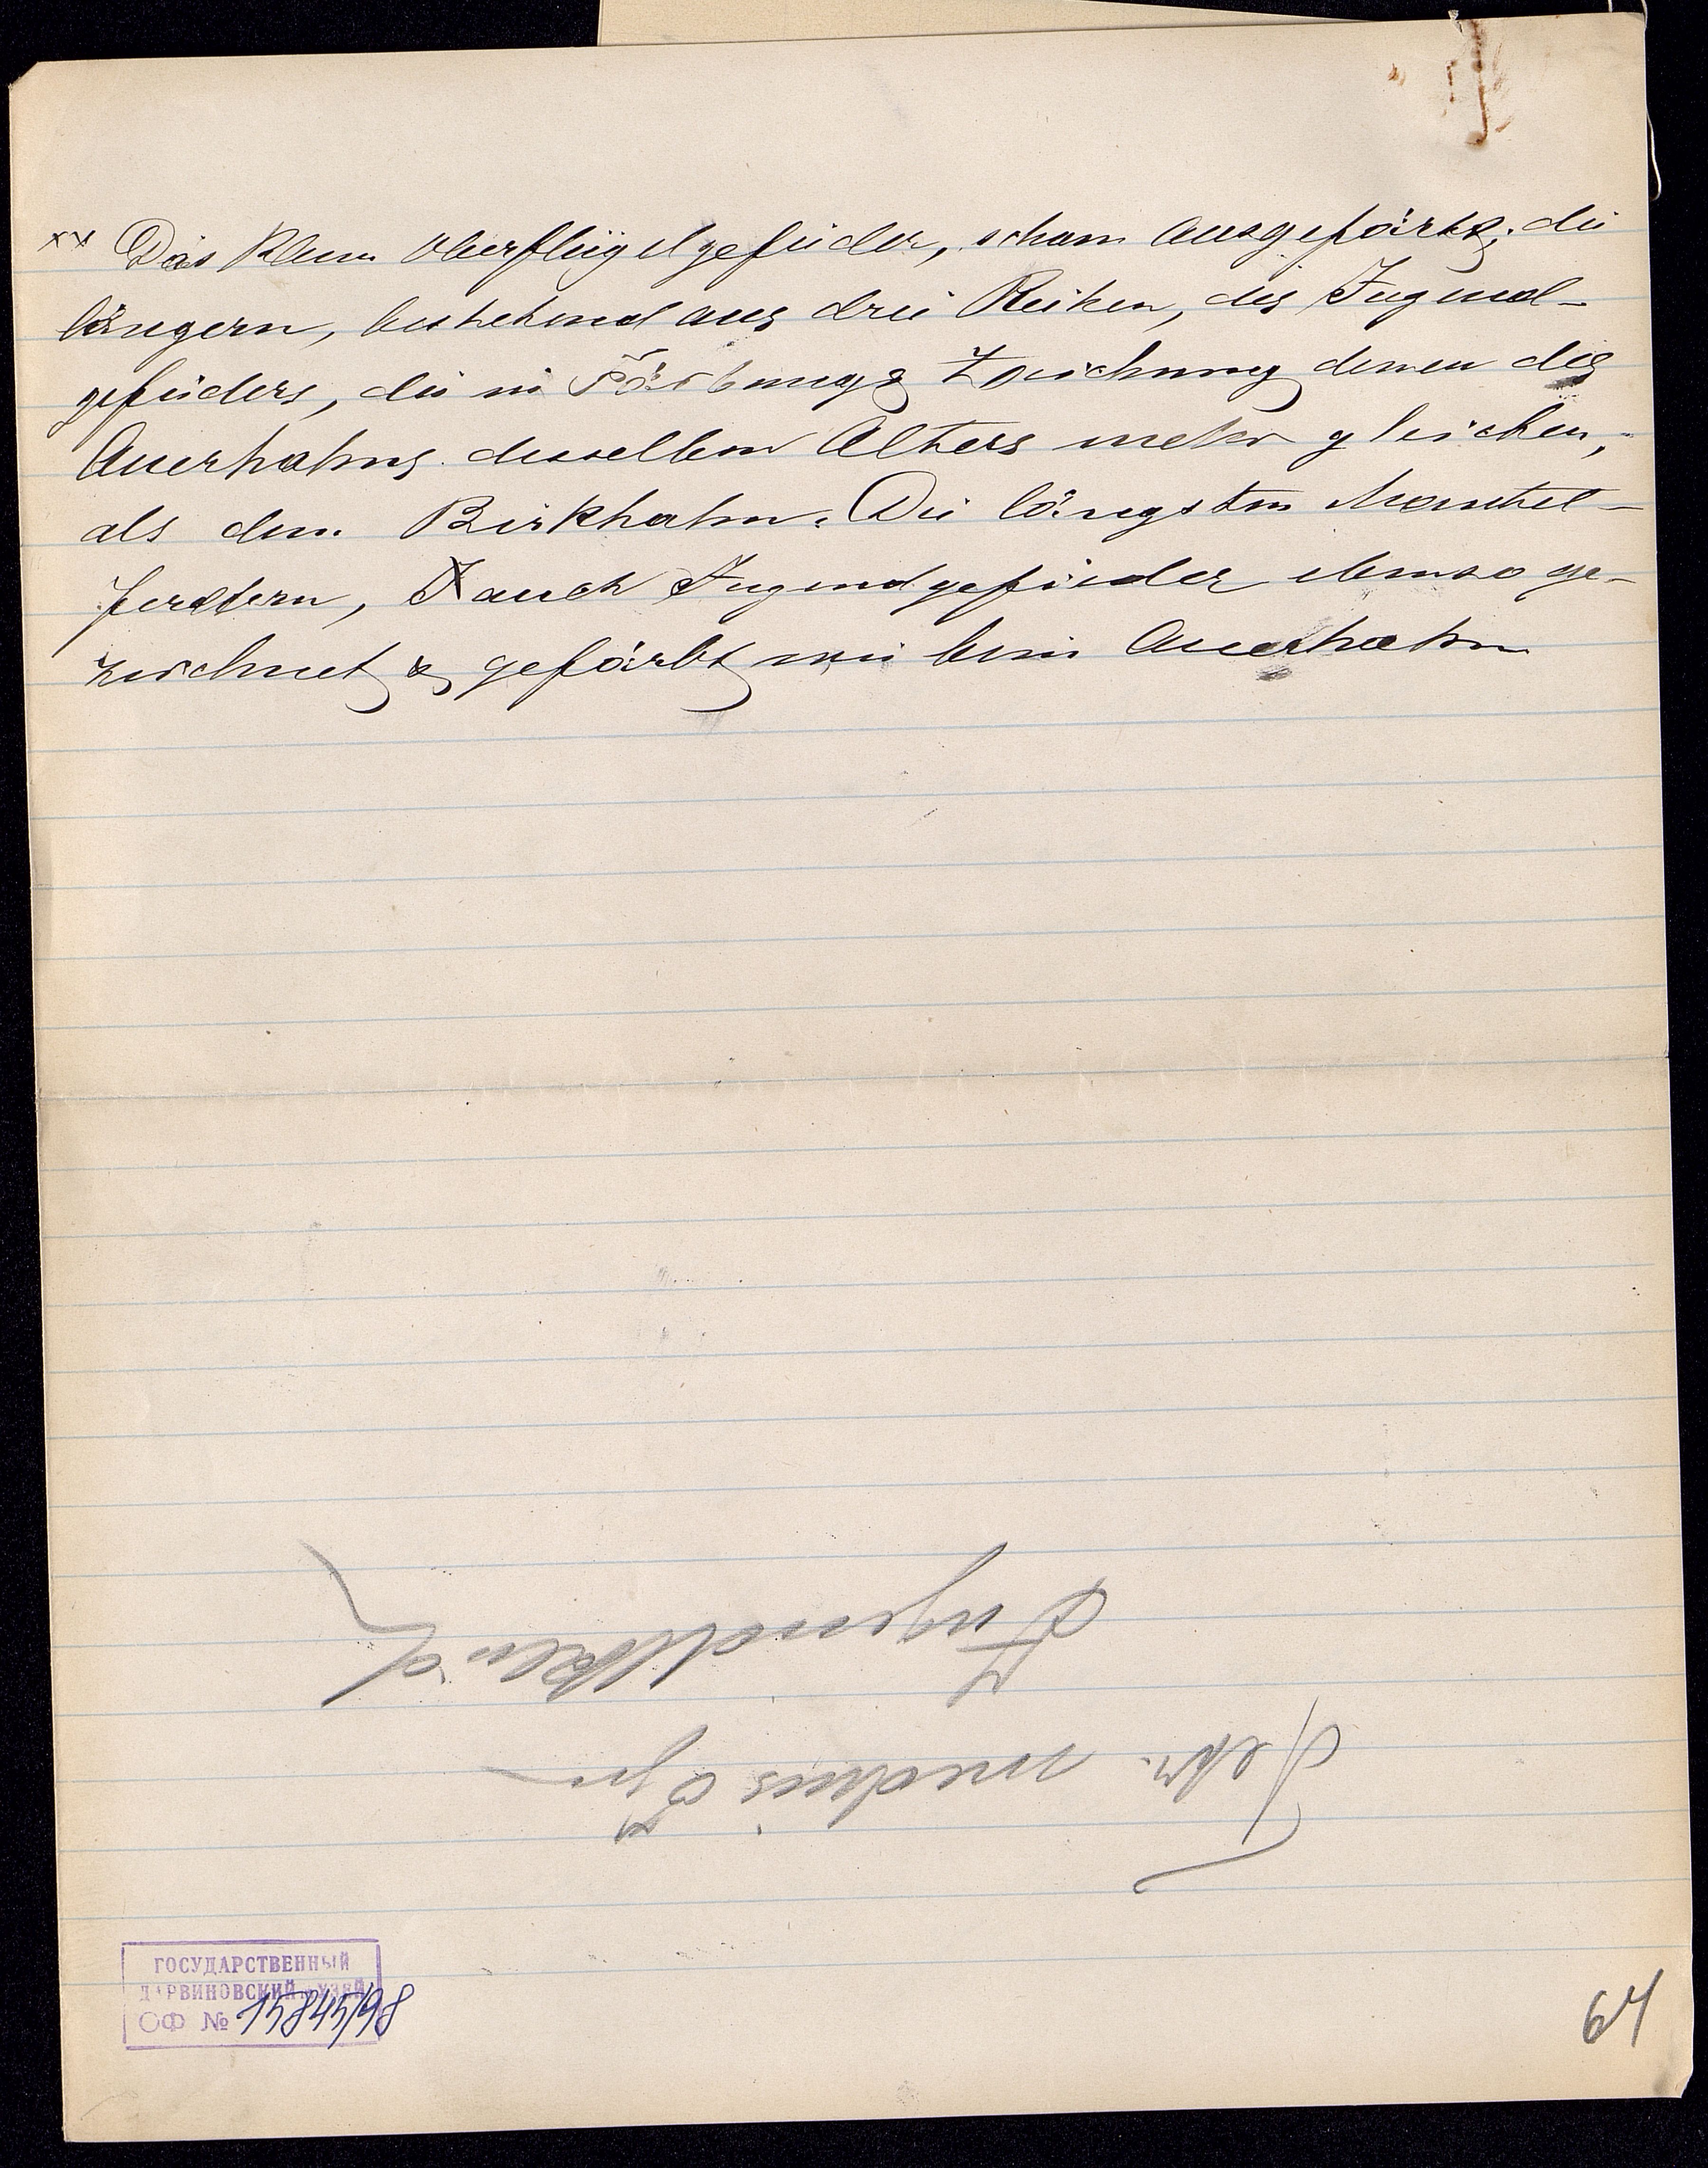 xx Das klein Oberflügelgefieder, schon ausgefärbt; die
längern, bestehend aus drei Reihen, des Jugend-
gefieders, die in Färbung & Zeichnung denen des
Auerhahns desselben Alters mehr gleichen,
als dem Birkhahn. Die längsten Mantel-
federn, auch Jugendgefieder ebenso ge-
zeichnet & gefärbt wie beim Auerhahn
Jugendkleid
Tetr. medius
ГОСУДАРСТВЕННЫЙ
ДАРВИНОВСКИЙ МУЗЕЙ
ОФ № 15845/98
64